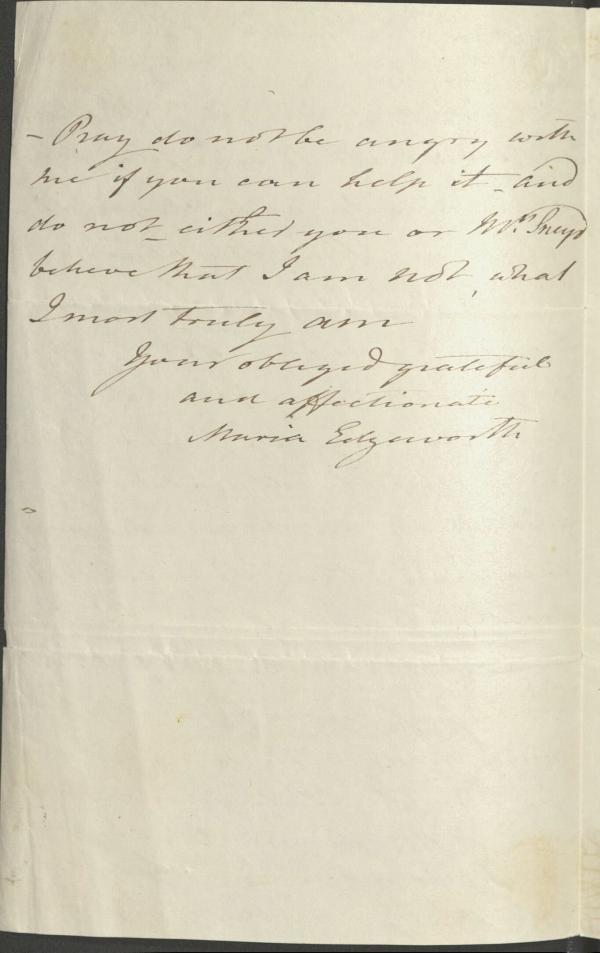 - Pray do not be angry with
me if you can help it - and
do not - either you or Mr. Sneyd
believe that I am not, what
I most truly am
Your obliged grateful
and affectionate
Maria Edgeworth